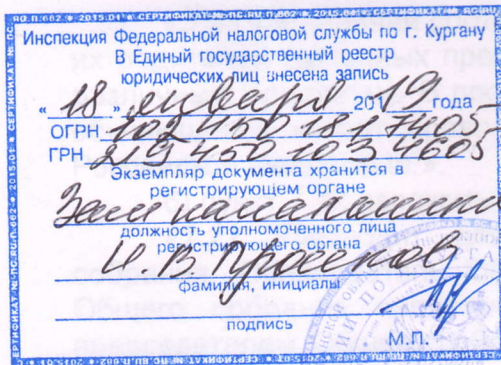 Инспекция Федеральной налоговой службы по г. Кургану
В Единый государственный реестр
юридических лиц внесена запись
« 18 » января 2019 года
ОГРН 1024501817405
ГРН 2194501034605
Экземпляр документа хранится в
регистрирующем органе
Зам начальника
должность уполномоченного лица
регистрирующего органа
И. В.
фамилия, инициалы
подпись
М.П.